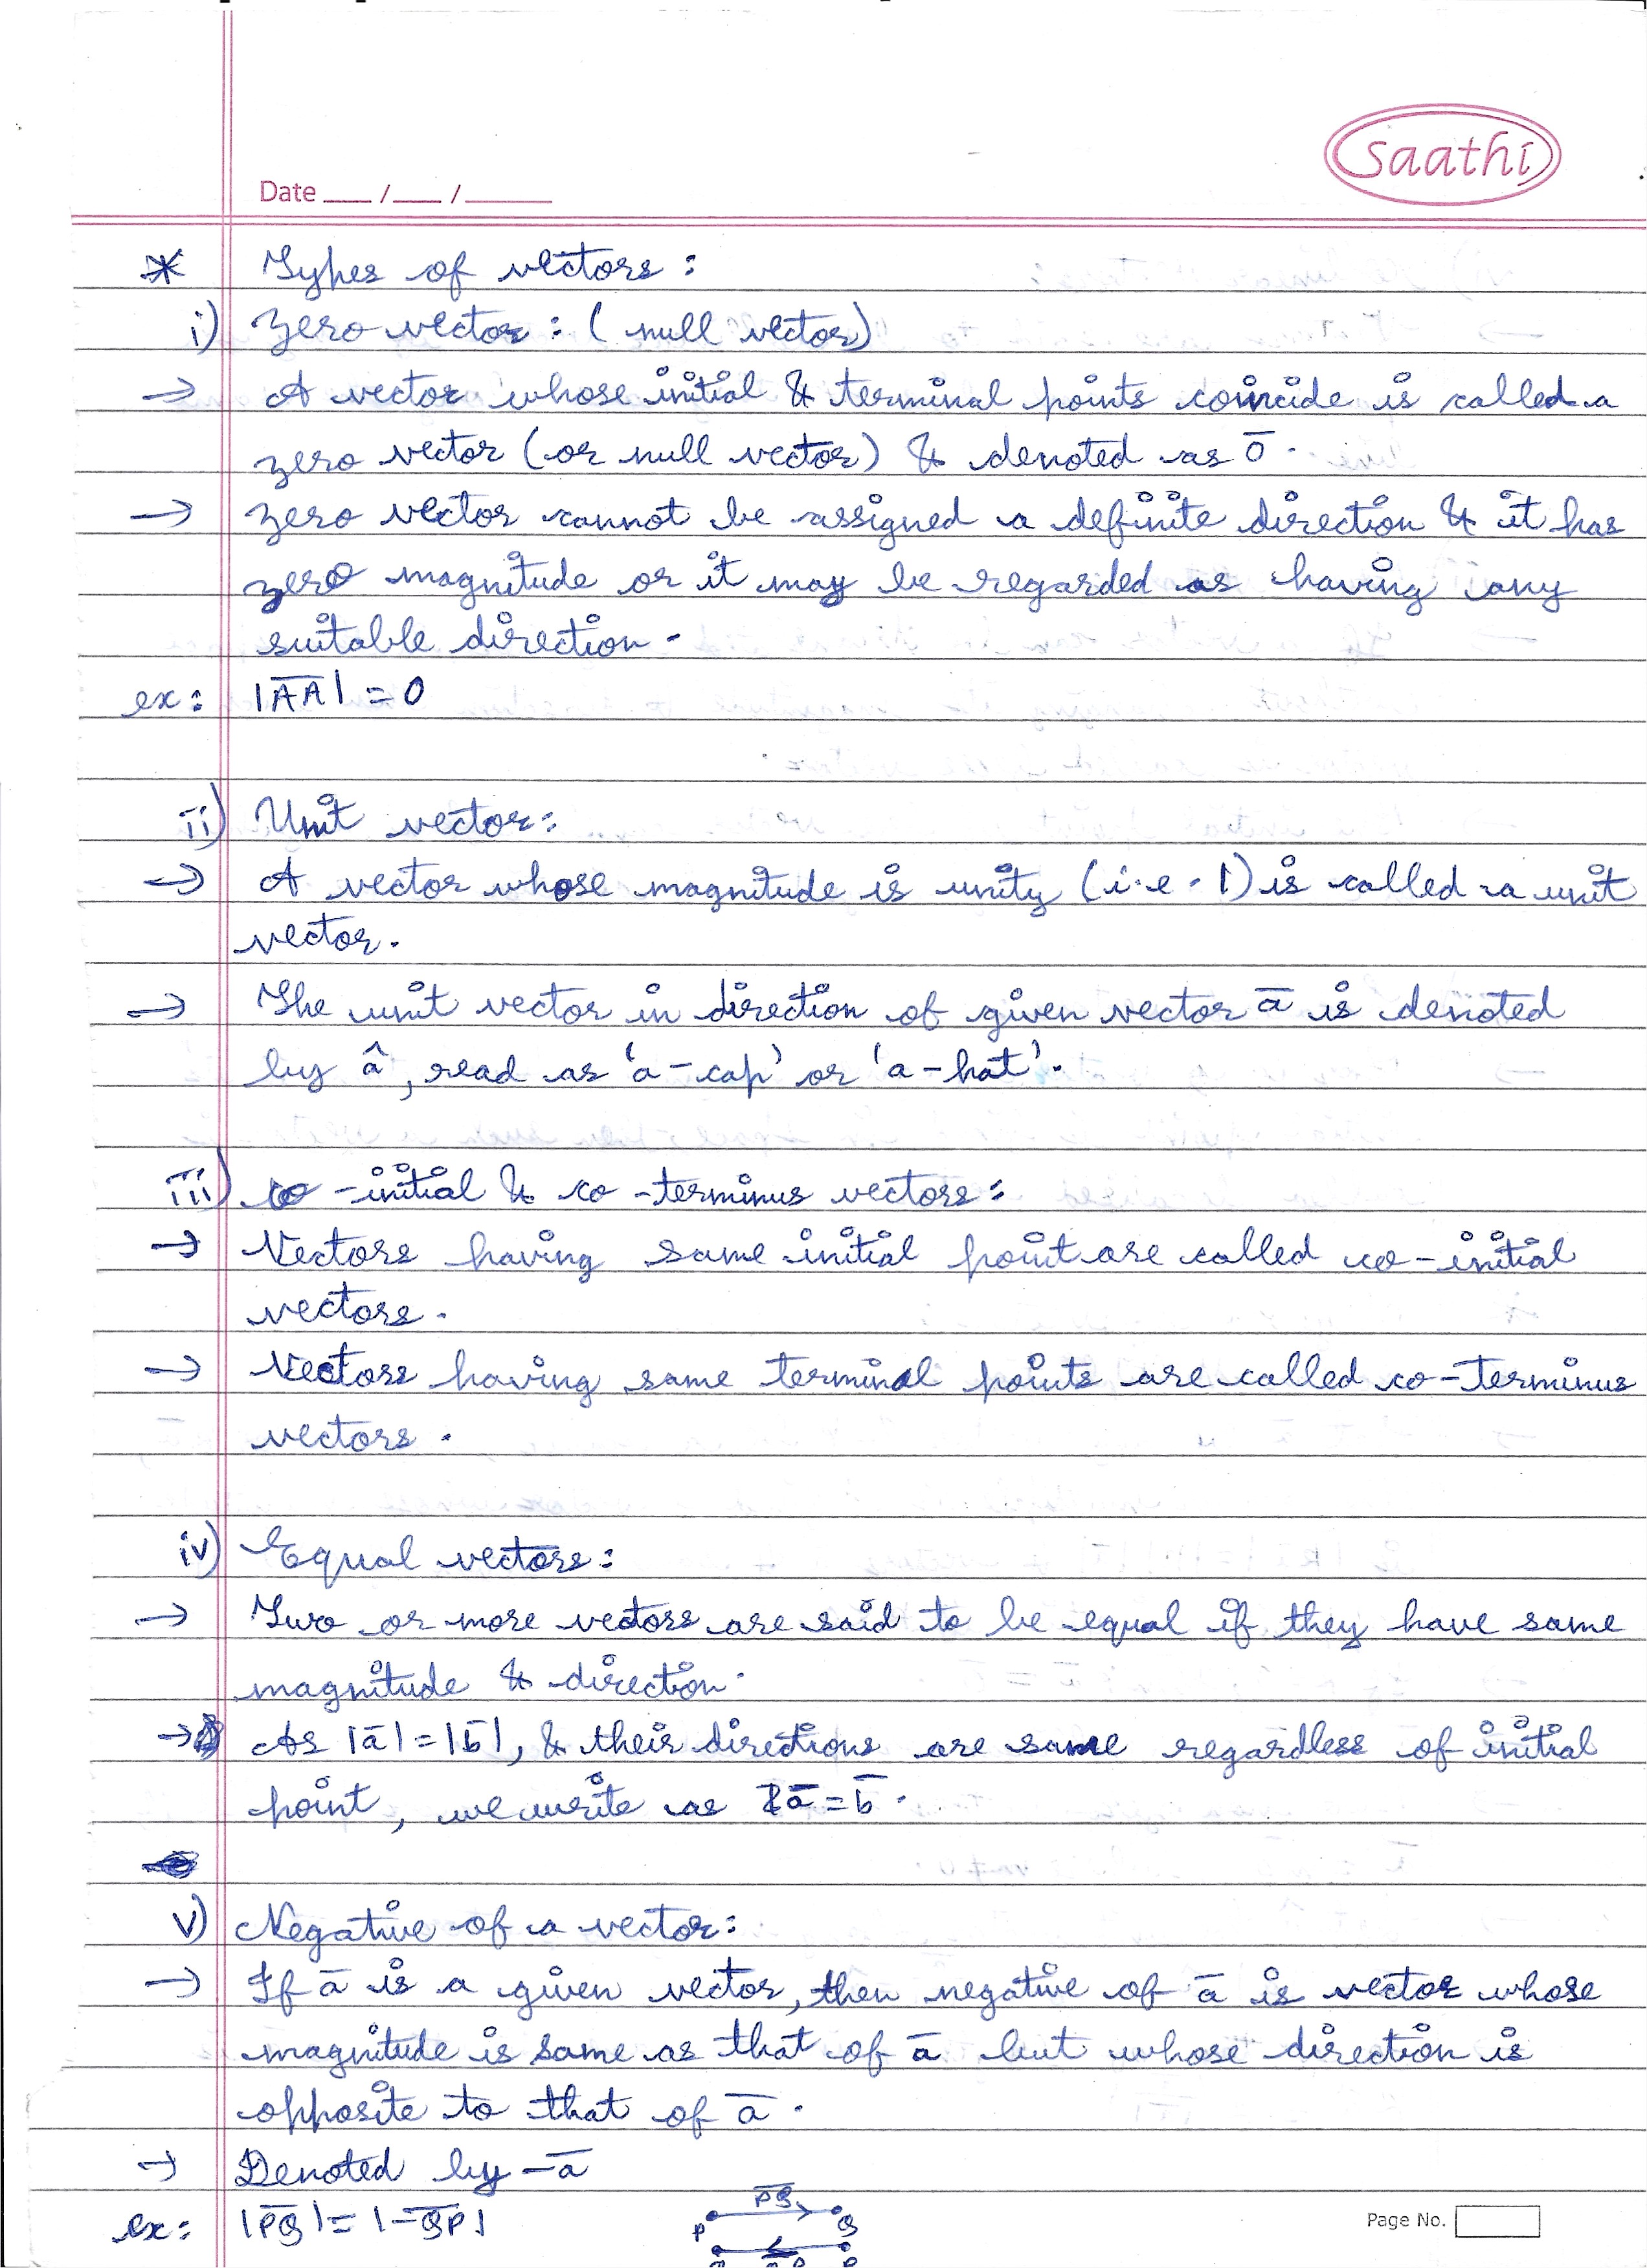 saathi
Date ___/___/_____
* Types of vectors :
i) Zero vector : ( null vector)
→ A vector whose initial & terminal points coincide is called a
zero vector (or null vector) & denoted as 0̅ .
→ zero vector cannot be assigned a definite direction & it has
zero magnitude or it may be regarded as having any
suitable direction .
ex : |A̅A̅| = 0
ii) Unit vector :
→ A vector whose magnitude is unity (i.e. 1) is called a unit
vector .
→ The unit vector in direction of given vector a̅ is denoted
by â , read as 'a-cap' or 'a-hat' .
iii) co-initial & co-terminus vectors :
→ Vectors having same initial point are called co-initial
vectors .
→ Vectors having same terminal points are called co-terminus
vectors .
iv) Equal vectors :
→ Two or more vectors are said to be equal if they have same
magnitude & direction .
→ As |a̅| = |b̅|, & their directions are same regardless of initial
point , we write as a̅ = b̅ .
v) Negative of a vector :
→ If a̅ is a given vector, then negative of a̅ is vector whose
magnitude is same as that of a̅ but whose direction is
opposite to that of a̅ .
→ Denoted by -a̅
P̅Q̅
ex : |P̅Q̅| = |-Q̅P̅|
P Q
Page No.